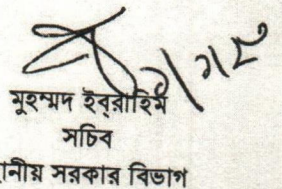 মুহম্মদ ইব্‌রাহিম
সচিব
নীয় সরকার বিভাগ